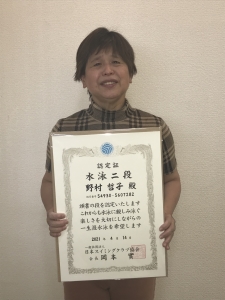 認定証
水泳二段
野村 哲子 殿
54950-5607202
頭書の段を認定いたします
これからも水泳に親しみ泳ぐ
楽しさも大切にしながらの
一生涯水泳を希望します
2021年 8月 16日
一般社団法人
日本スイミングクラブ協会
会長 岡本 實